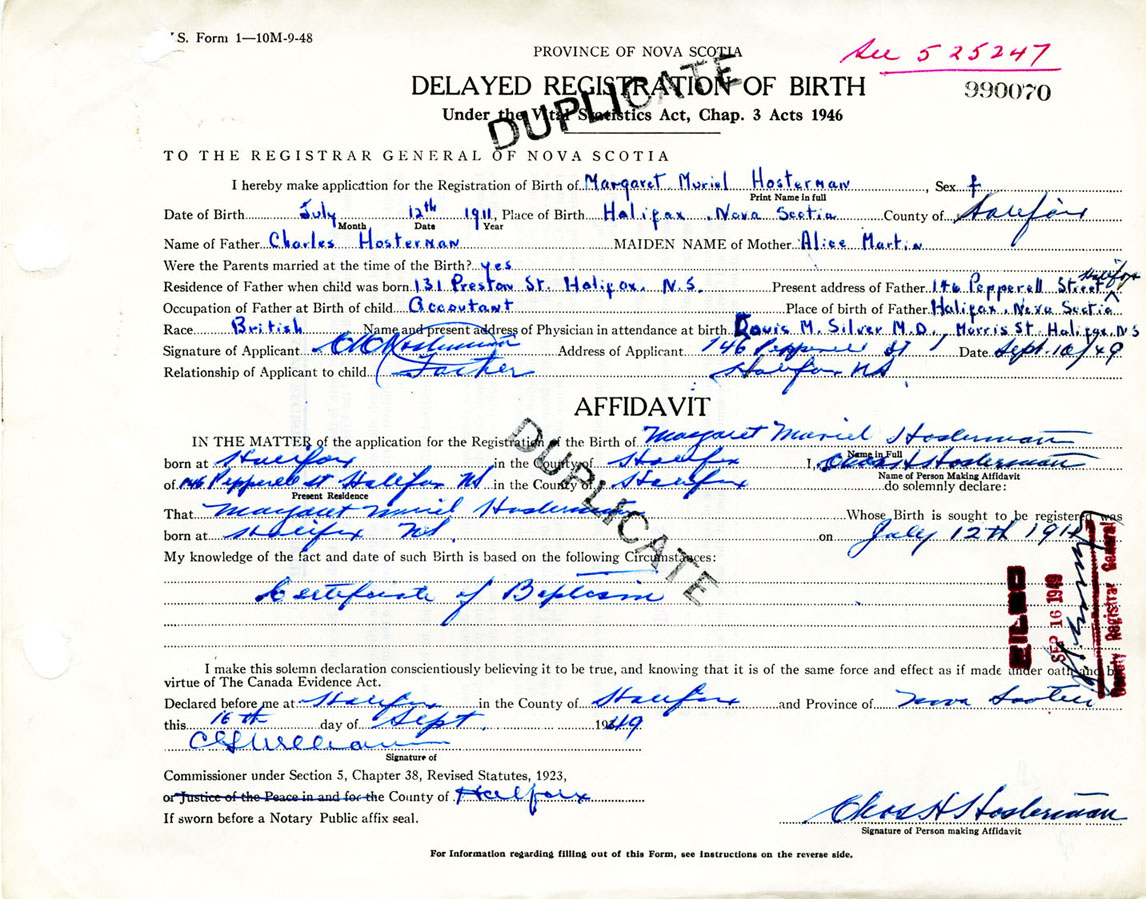 V.S. Form 1—10M-9-48
PROVINCE OF NOVA SCOTIA
See 525247
DELAYED REGISTRATION OF BIRTH
990070
DUPLICATE
Under the Vital Statistics Act, Chap. 3 Acts 1946
TO THE REGISTRAR GENERAL OF NOVA SCOTIA
I hereby make application for the Registration of Birth of Margaret Muriel Hosterman, Sex f
Print Name in full
Date of Birth July 12th 1911, Place of Birth Halifax, Nova Scotia County of Halifax
Month Date Year
Name of Father Charles Hosterman MAIDEN NAME of Mother Alice Martin
Were the Parents married at the time of the Birth? yes
Residence of Father when child was born 131 Preston St. Halifax, N.S. Present address of Father 146 Pepperell Street Halifax
Occupation of Father at Birth of child Accoutant Place of birth of Father Halifax, Nova Scotia
Race British Name and present address of Physician in attendance at birth Louis M. Silver M.D., Morris St. Halifax, N.S
Signature of Applicant Hosterman Address of Applicant 146 Pepperell St Date Sept. 10/49
Relationship of Applicant to child (Father Halifax NS
AFFIDAVIT
DUPLICATE
IN THE MATTER of the application for the Registration of the Birth of Margaret Muriel Hosterman
Name in Full
born at Halifax in the County of Halifax I, Chas H Hosterman
Name of Person Making Affidavit
of 146 Pepperell St Halifax NS in the County of Halifax do solemnly declare:
Present Residence
That Margaret Muriel Hosterman Whose Birth is sought to be registered was
born at Halifax NS. on July 12th 1911
My knowledge of the fact and date of such Birth is based on the following Circumstances:
Certificate of Baptism
FILED
SEP 16 1949
Deputy Registrar General
I make this solemn declaration conscientiously believing it to be true, and knowing that it is of the same force and effect as if made under oath and by
virtue of The Canada Evidence Act.
Declared before me at Halifax in the County of Halifax and Province of Nova Scotia
this 16th day of Sept 1949
Signature of
Commissioner under Section 5, Chapter 38, Revised Statutes, 1923,
or Justice of the Peace in and for the County of Halifax
If sworn before a Notary Public affix seal.
Chas H Hosterman
Signature of Person making Affidavit
For Information regarding filling out of this Form, see Instructions on the reverse side.